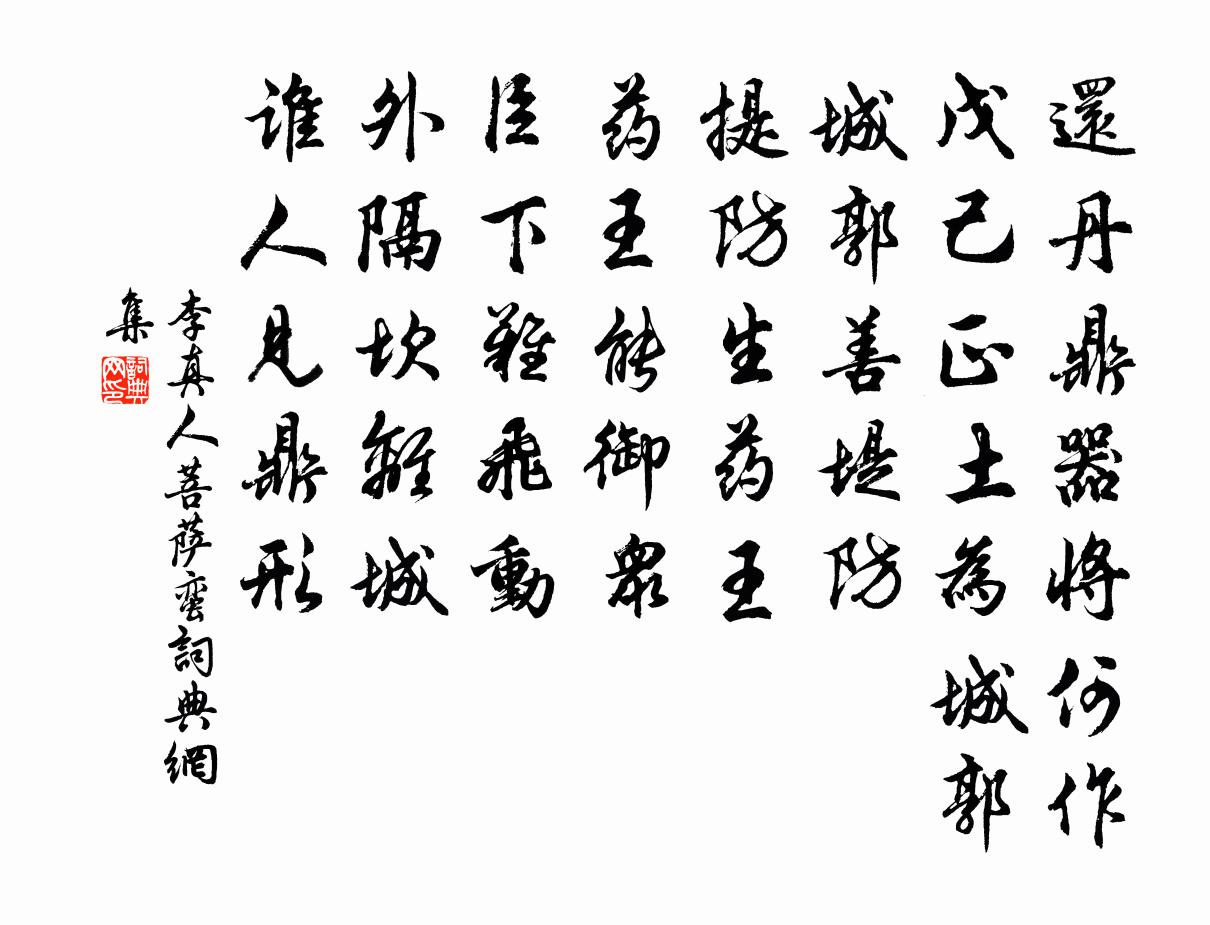 還丹鼎器將何作
戊己正土為城郭
城郭善堤防
提防生药王
药王能御眾
臣下難飛動
外隔坎離城
谁人見鼎形
李真人菩萨蛮詞典網
集
詞典网印